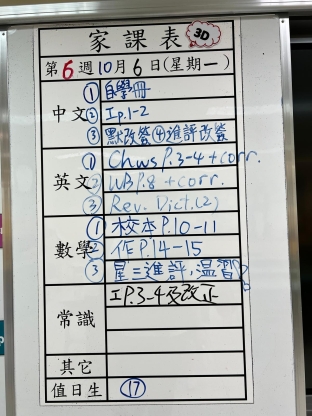 家課表 3D
第6週10月6日(星期一)
中文 ① 自學冊
② 工p.1-2
③ 默改簽 ④ 進評改簽
英文 ① Chws P.3-4 + corr.
② WB P.8 + corr.
③ Rev. Dict.(2)
數學 ① 校本 P.10-11
② 作 P.14-15
③ 星三進評,溫習
常識 工P.3-4及改正
其它
值日生 ⑰